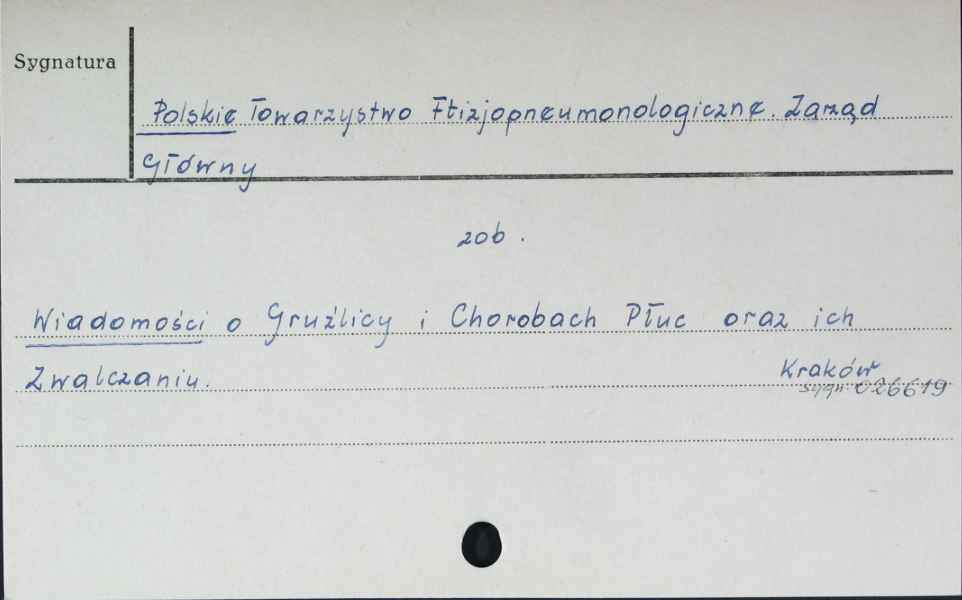 Sygnatura
Polskie Towarzystwo Ftizjopneumonologiczne. Zarząd
Główny
zob.
Wiadomości o Gruźlicy i Chorobach Płuc oraz ich
Zwalczaniu.
Kraków
sygn 026619